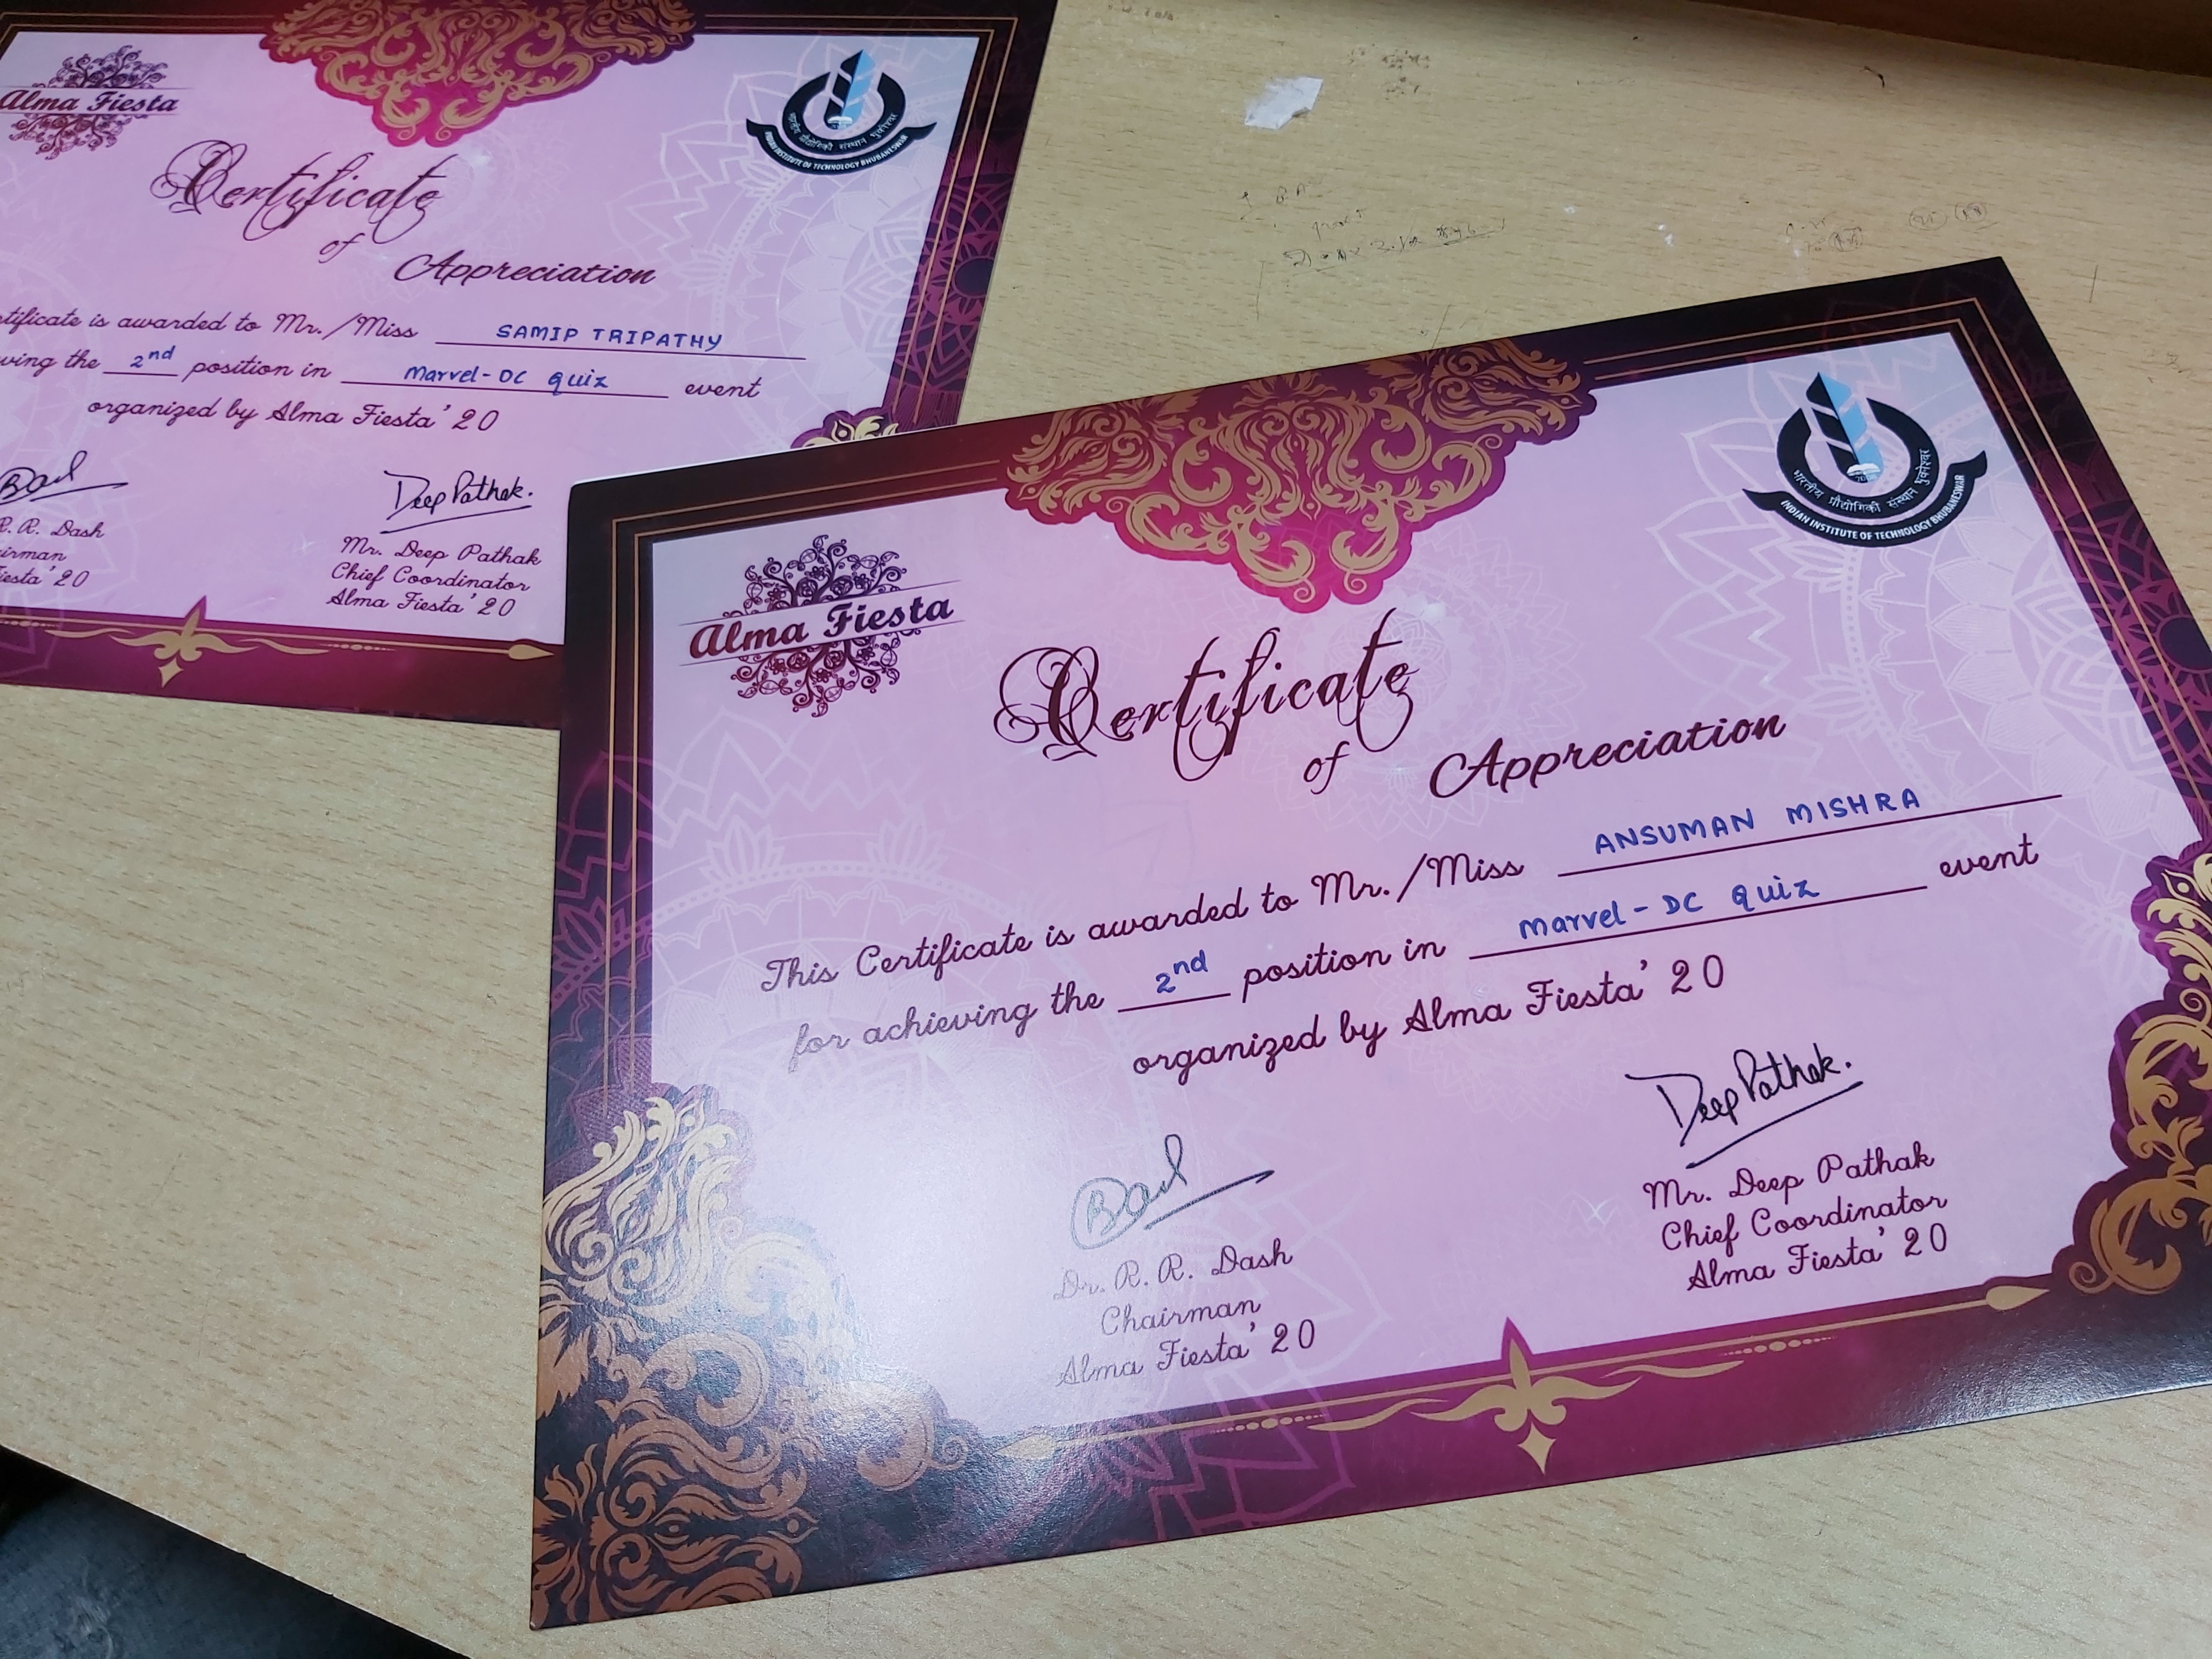 Alma Fiesta
भारतीय प्रौद्योगिकी संस्थान भुवनेश्वर
INDIAN INSTITUTE OF TECHNOLOGY BHUBANESWAR
Certificate
of
Appreciation
tificate is awarded to Mr./Miss SAMIP TRIPATHY
ving the 2nd position in Marvel-DC quiz event
organized by Alma Fiesta'20
Deep Pathak.
R. R. Dash
irman
iesta'20
Mr. Deep Pathak
Chief Coordinator
Alma Fiesta'20
Alma Fiesta
भारतीय प्रौद्योगिकी संस्थान भुवनेश्वर
INDIAN INSTITUTE OF TECHNOLOGY BHUBANESWAR
Certificate
of
Appreciation
This Certificate is awarded to Mr./Miss ANSUMAN MISHRA
for achieving the 2nd position in Marvel-DC quiz event
organized by Alma Fiesta'20
Deep Pathak.
Dr. R. R. Dash
Chairman
Alma Fiesta'20
Mr. Deep Pathak
Chief Coordinator
Alma Fiesta'20